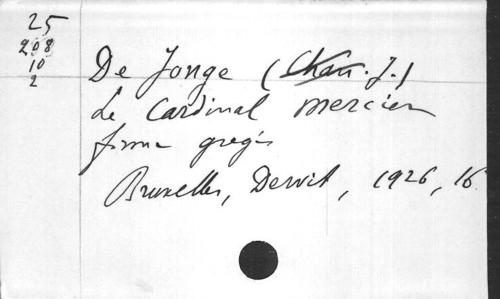 25
208
10
2
De Jonge (Chan. J.)
Le Cardinal Mercier
forma gregis
Bruxelles, Dewit, 1926, 16